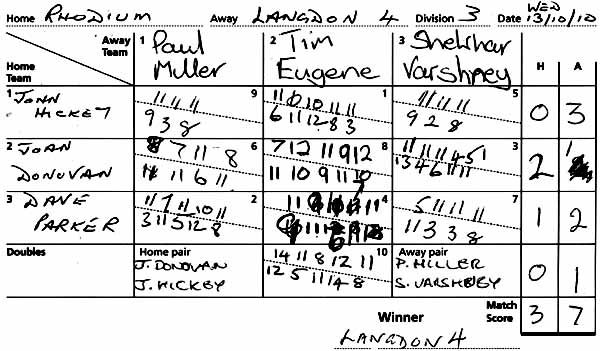 Home RHODIUM Away LANGDON 4 Division 3 Date WED 13/10/10
Away Team 1 Paul Miller 2 Tim Eugene 3 Shekhar Varshney H A
Home Team
1 JOHN HICKEY 9 1 5 0 3
11 11 11
9 3 8
11 10 10 11 11
6 11 12 8 3
11 11 11
9 2 8
2 JOAN DONOVAN 6 8 3 2 1
8 7 11 8
11 11 6 11
7 12 11 9 12
11 10 9 11 10
11 11 11 4 5
13 4 6 11 11
3 DAVE PARKER 2 4 7 1 2
11 7 11 10 11
3 11 5 12 8
5 11 11 11
11 3 3 8
Doubles Home pair 10 Away pair 0 1
J. DONOVAN
J. HICKEY
14 11 8 12 11
12 5 11 14 8
P. MILLER
S. VARSHNEY
Match Score 3 7
Winner
LANGDON 4